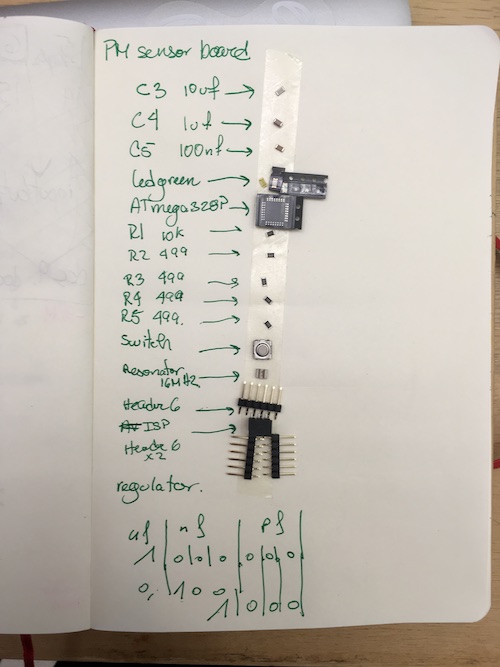 PM sensor board
C3 10uf
C4 1uf
C5 100nf
led green
ATmega328P
R1 10k
R2 499
R3 499
R4 499
R5 499.
Switch
Resonator
16MHz
Header 6
ISP
Header 6
x2
regulator.
uf nf pf
1 0 0 0 0 0 0
0, 1 0 0
1 0 0 0